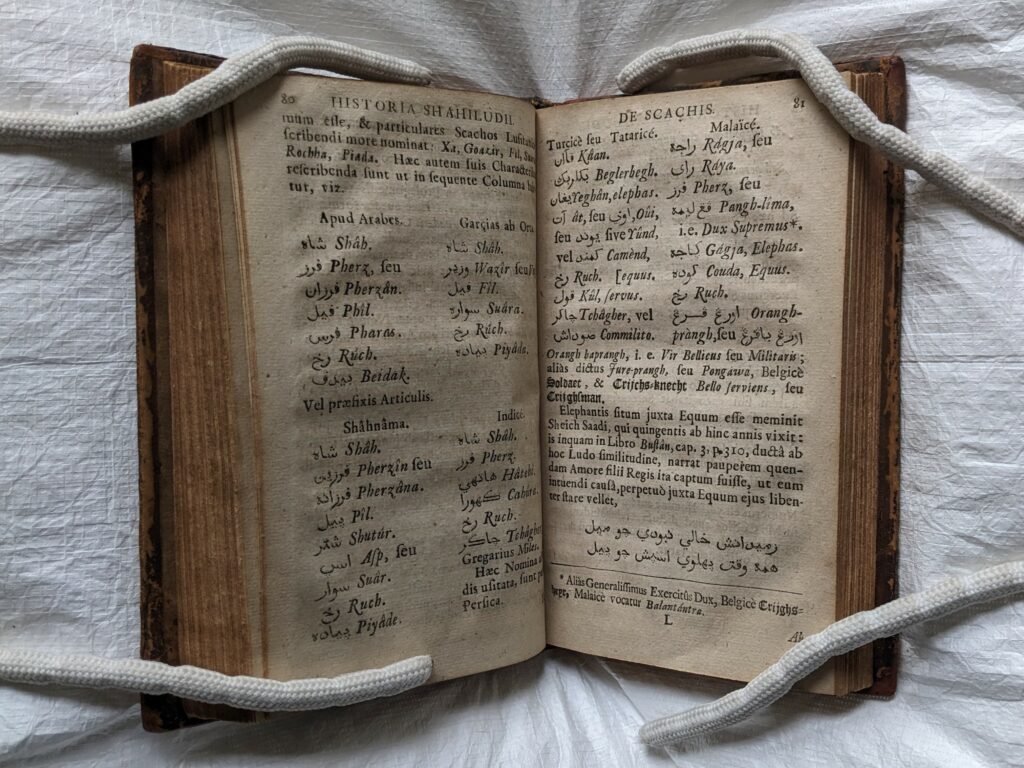 80 HISTORIA SHÂHILUDII
mum esse, & particulares Scachos Lusitanico
scribendi more nominat: Xa, Goazir, Fil,
Rochha, Piada. Hæc autem suis Characteribus
rescribenda sunt ut in sequente Columna
tur, viz.
Apud Arabes.
شاه Shâh.
فرز Pherz, seu
فرزان Pherzân.
فيل Phîl.
فرس Pharas.
رخ Rúch.
بيدف Beidak.
Vel præfixis Articulis.
Shâhnâma.
شاه Shâh.
فرزين Pherzîn seu
فرزانه Pherzâna.
پيل Pîl.
شتر Shutúr.
اسپ Asp, seu
سوار Suâr.
رخ Ruch.
پياده Piyâde.
Garçias ab Orta
شاه Shâh.
وزير Wazîr seu
فيل Fîl.
سواره Suâra.
رخ Rúch.
پياده Piyâda.
Indicé.
شاه Shâh.
فرز Pherz.
هاتهي Hâtehi
كهورا
رخ Ruch.
چاكر Tchâgher
Gregarius Miles.
Hæc Nomina
dis usitata, sunt
Persica.
DE SCACHIS. 81
Turcicè seu Tataricé.
قاان Kâan.
بكلربك Beglerbegh.
يغان Yeghân, elephas.
آت ât, seu اوي, Oûi,
seu يوند sive Yûnd,
vel كمند Camènd,
رخ Ruch. [equus.
قول Kûl, servus.
چاكر Tchâgher, vel
صوداش Commilito.
Malaïcé.
راجه Râgja, seu
راي Râya.
فرز Pherz, seu
Pangh-lima,
i.e. Dux Supremus*.
كاجه Gâgja, Elephas.
كوده Couda, Equus.
رخ Ruch.
اورغ فرغ Orangh-
pràngh, seu اورغ بافرغ
Orangh baprangh, i. e. Vir Bellicus seu Militaris;
aliàs dictus Jure-prangh, seu Pongawa, Belgicè
Soldaet, & Crijchs-knecht Bello serviens, seu
Crijghsman.
Elephantis situm juxta Equum esse meminit
Sheich Saadi, qui quingentis ab hinc annis vixit:
is inquam in Libro Bustân, cap. 3. p. 310, ductâ ab
hoc Ludo similitudine, narrat pauperem quen-
dam Amore filii Regis ita captum fuisse, ut eum
intuendi causâ, perpetuò juxta Equum ejus liben-
ter stare vellet,
زميدانش خالي نبودي چو ميل
همه وقت پهلوي اسپش چو پيل
* Aliàs Generalissimus Exercitûs Dux, Belgicè Crijghs-
Malaicè vocatur Balantántra.
L
Ab